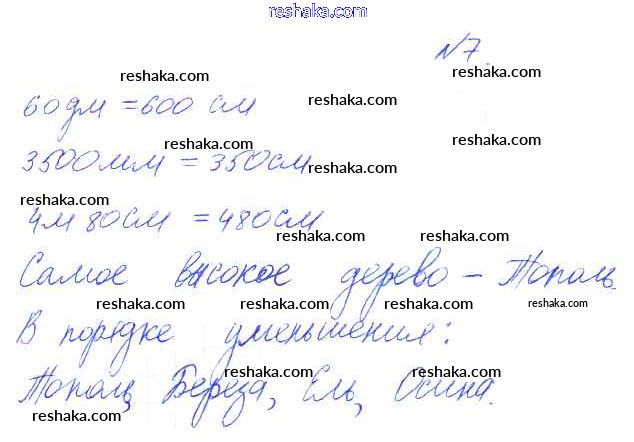 reshaka.com
N7.
reshaka.com reshaka.com
60дм = 600 см reshaka.com
reshaka.com reshaka.com
3500мм = 350см reshaka.com
reshaka.com
4м 80см = 480см
reshaka.com reshaka.com
Самое высокое дерево - Тополь
reshaka.com reshaka.com reshaka.com
В порядке уменьшения:
reshaka.com reshaka.com
Тополь, Береза, Ель, Осина.
reshaka.com